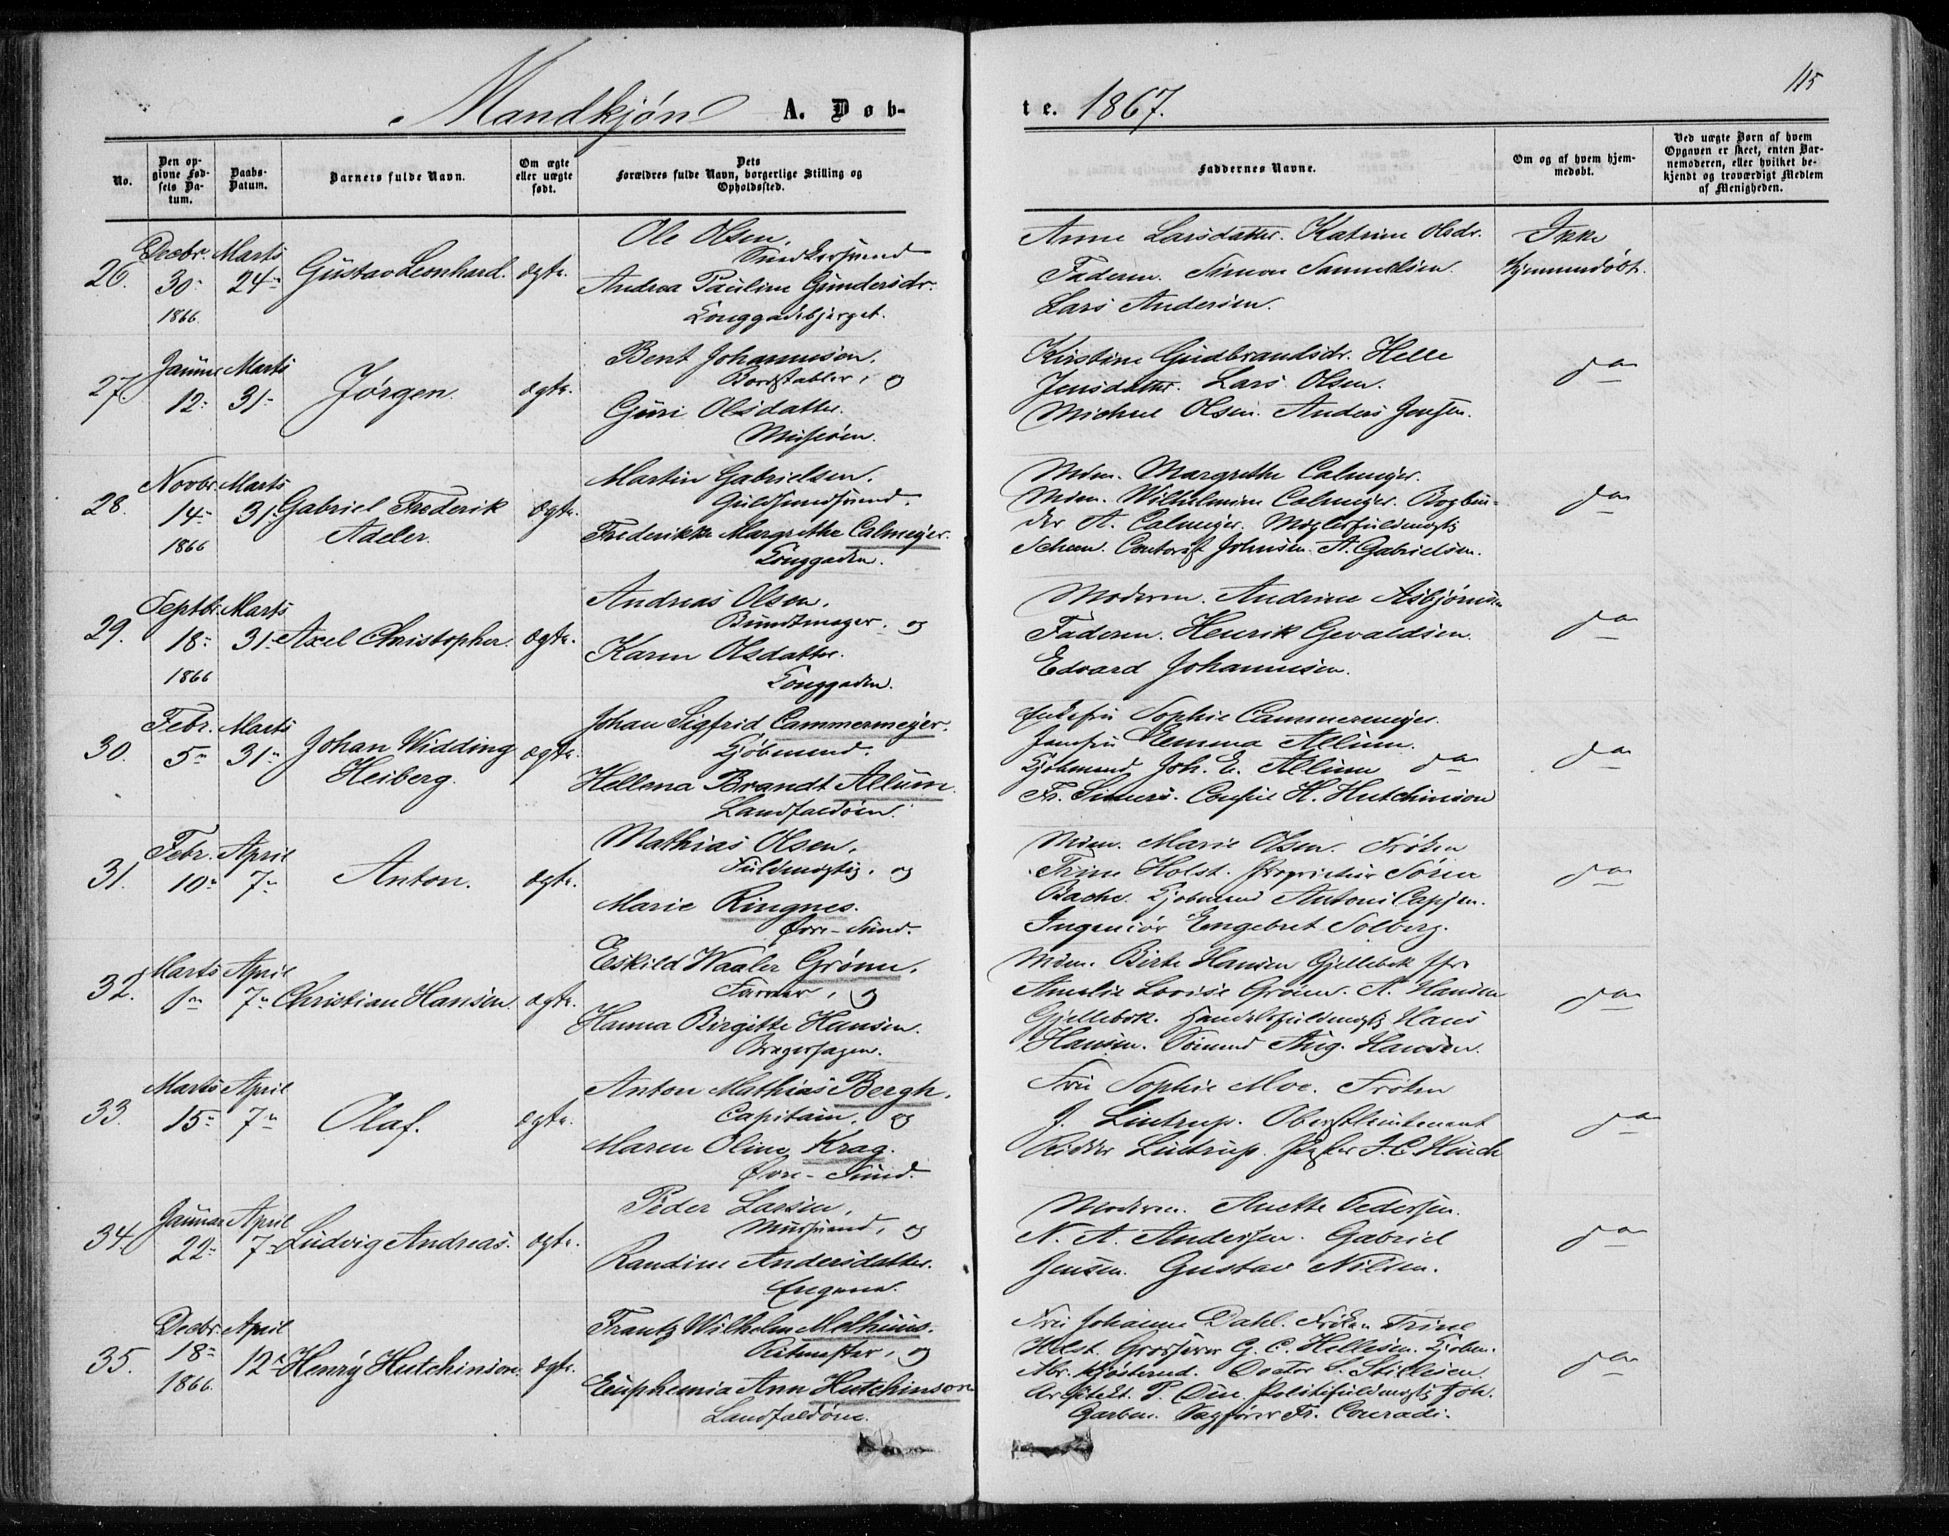 115
Mandkjøn A. Døb-
te. 1867.
No.
Den op-
givne Fød-
sels Da-
tum.
Daabs-
Datum.
Barnets fulde Navn.
Om ægte
eller uægte
født.
Dets
Forældres fulde Navn, borgerlige Stilling og
Opholdssted.
Faddernes Navne.
Om og af hvem hjem-
medøbt.
Ved uægte Børn af hvem
Opgaven er skeet, enten Bar-
nemoderen, eller hvilket be-
kjendt og troværdigt Medlem
af Menigheden.
26.
Decbr.
30
1866
Marts
24
Gustav Leonhard.
ægte.
Ole Olsen.
Andrea Pauline Gundersdr.
Konggadebjerget.
Anne Larsdatter. Katrine Olsdr.
Faderen. Simon Samuelsen.
Lars Andersen.
Ikke
hjemmedøbt.
27.
12
Marts
31
Jørgen.
ægte.
Bent Johannesen.
Bordstabler, og
Guri Olsdatter.
Kirstine Gudbrandsdr. Helle
Jensdatter. Lars Olsen.
Michael Olsen. Anders Jensen.
do
28.
Novbr.
14
1866
Marts
31
Gabriel Frederik
Adeler.
ægte.
Martin Gabrielsen.
Guldsmedsvend.
Frederikke Margrethe Calmeijer.
Konggaden.
Mdm. Margrethe Calmeijer.
Mdm. Wilhelmine Calmeijer. Bogbin-
der A. Calmeijer. Møglerfuldmægtig
Scheen. Contorist Johnsen. A. Gabrielsen.
do
29.
Septbr.
18
1866
Marts
31
Axel Christopher.
ægte.
Andreas Olsen.
Bundtmager, og
Karen Olsdatter.
Konggaden.
Moderen. Andrine Asbjørnsen
Faderen. Henrik Gevaldsen.
Edvard Johannesen.
do
30.
Febr.
5
Marts
31
Johan Widding
Heiberg.
ægte.
Johan Sigfrid Cammermeijer.
Kjøbmand.
Hellena Brandt Allum.
Landfaldøen.
Sophie Cammermeijer.
Jomfru Emma Allum.
Kjøbmand Joh. E. Allum do
Fr. Simers. Consul H. Hutchinson
do
31.
Febr.
10
April
7
Anton.
ægte.
Mathias Olsen.
Fuldmægtig, og
Marie Ringnes.
Øvre-Sund.
Mdm. Marie Olsen. Frøken
Trine Holst. Proprietær Søren
Bache. Kjøbmand Anton Capjen.
Ingeniør Engebret Solberg.
do
32.
Marts
April
7
Christian Hansen.
ægte.
Eskild Waaler Grønn.
Farver, og
Hanna Birgitte Hansen.
Bragernæsgen.
Mdm. Birte Hansen Gjellebek
Amalie Lovise Grønn. A. Hansen
Gjellebek. Handelsfuldmægtig Hans
Hansen. Sømand Aug. Hansen.
do
33.
Marts
15
April
7
Olaf.
ægte.
Anton Mathias Bergh.
Capitain, og
Maren Oline Krag.
Øvre-Sund.
Fru Sophie Moe. Frøken
J. Lintrup. Oberstlieutenant
Ridder Lintrup. J. C. Hinch
do
34.
Januar
22
April
7
Ludvig Andreas.
ægte.
Peder Larsen.
Mursvend, og
Randine Andersdatter.
Engene.
Moderen. Anette Pedersen.
N. A. Andersen. Gabriel
Jensen. Gustav Nilsen.
do
35.
Decbr.
18
1866
April
12
Henry Hutchinson.
ægte.
Frantz Wilhelm Melhuus.
Ritmester, og
Euphemia Ann Hutchinson
Landfaldøen.
Fru Johanne Dahl. Frøken Trine
Holst. Grosserer G. C. Hellesen. Kjøbm.
Abr. Kjøsterud. Doctor S. Stillesen.
Architekt. P. Due. Politifuldmægtig Joh.
Garben. Sagfører Fr. Conradi.
do